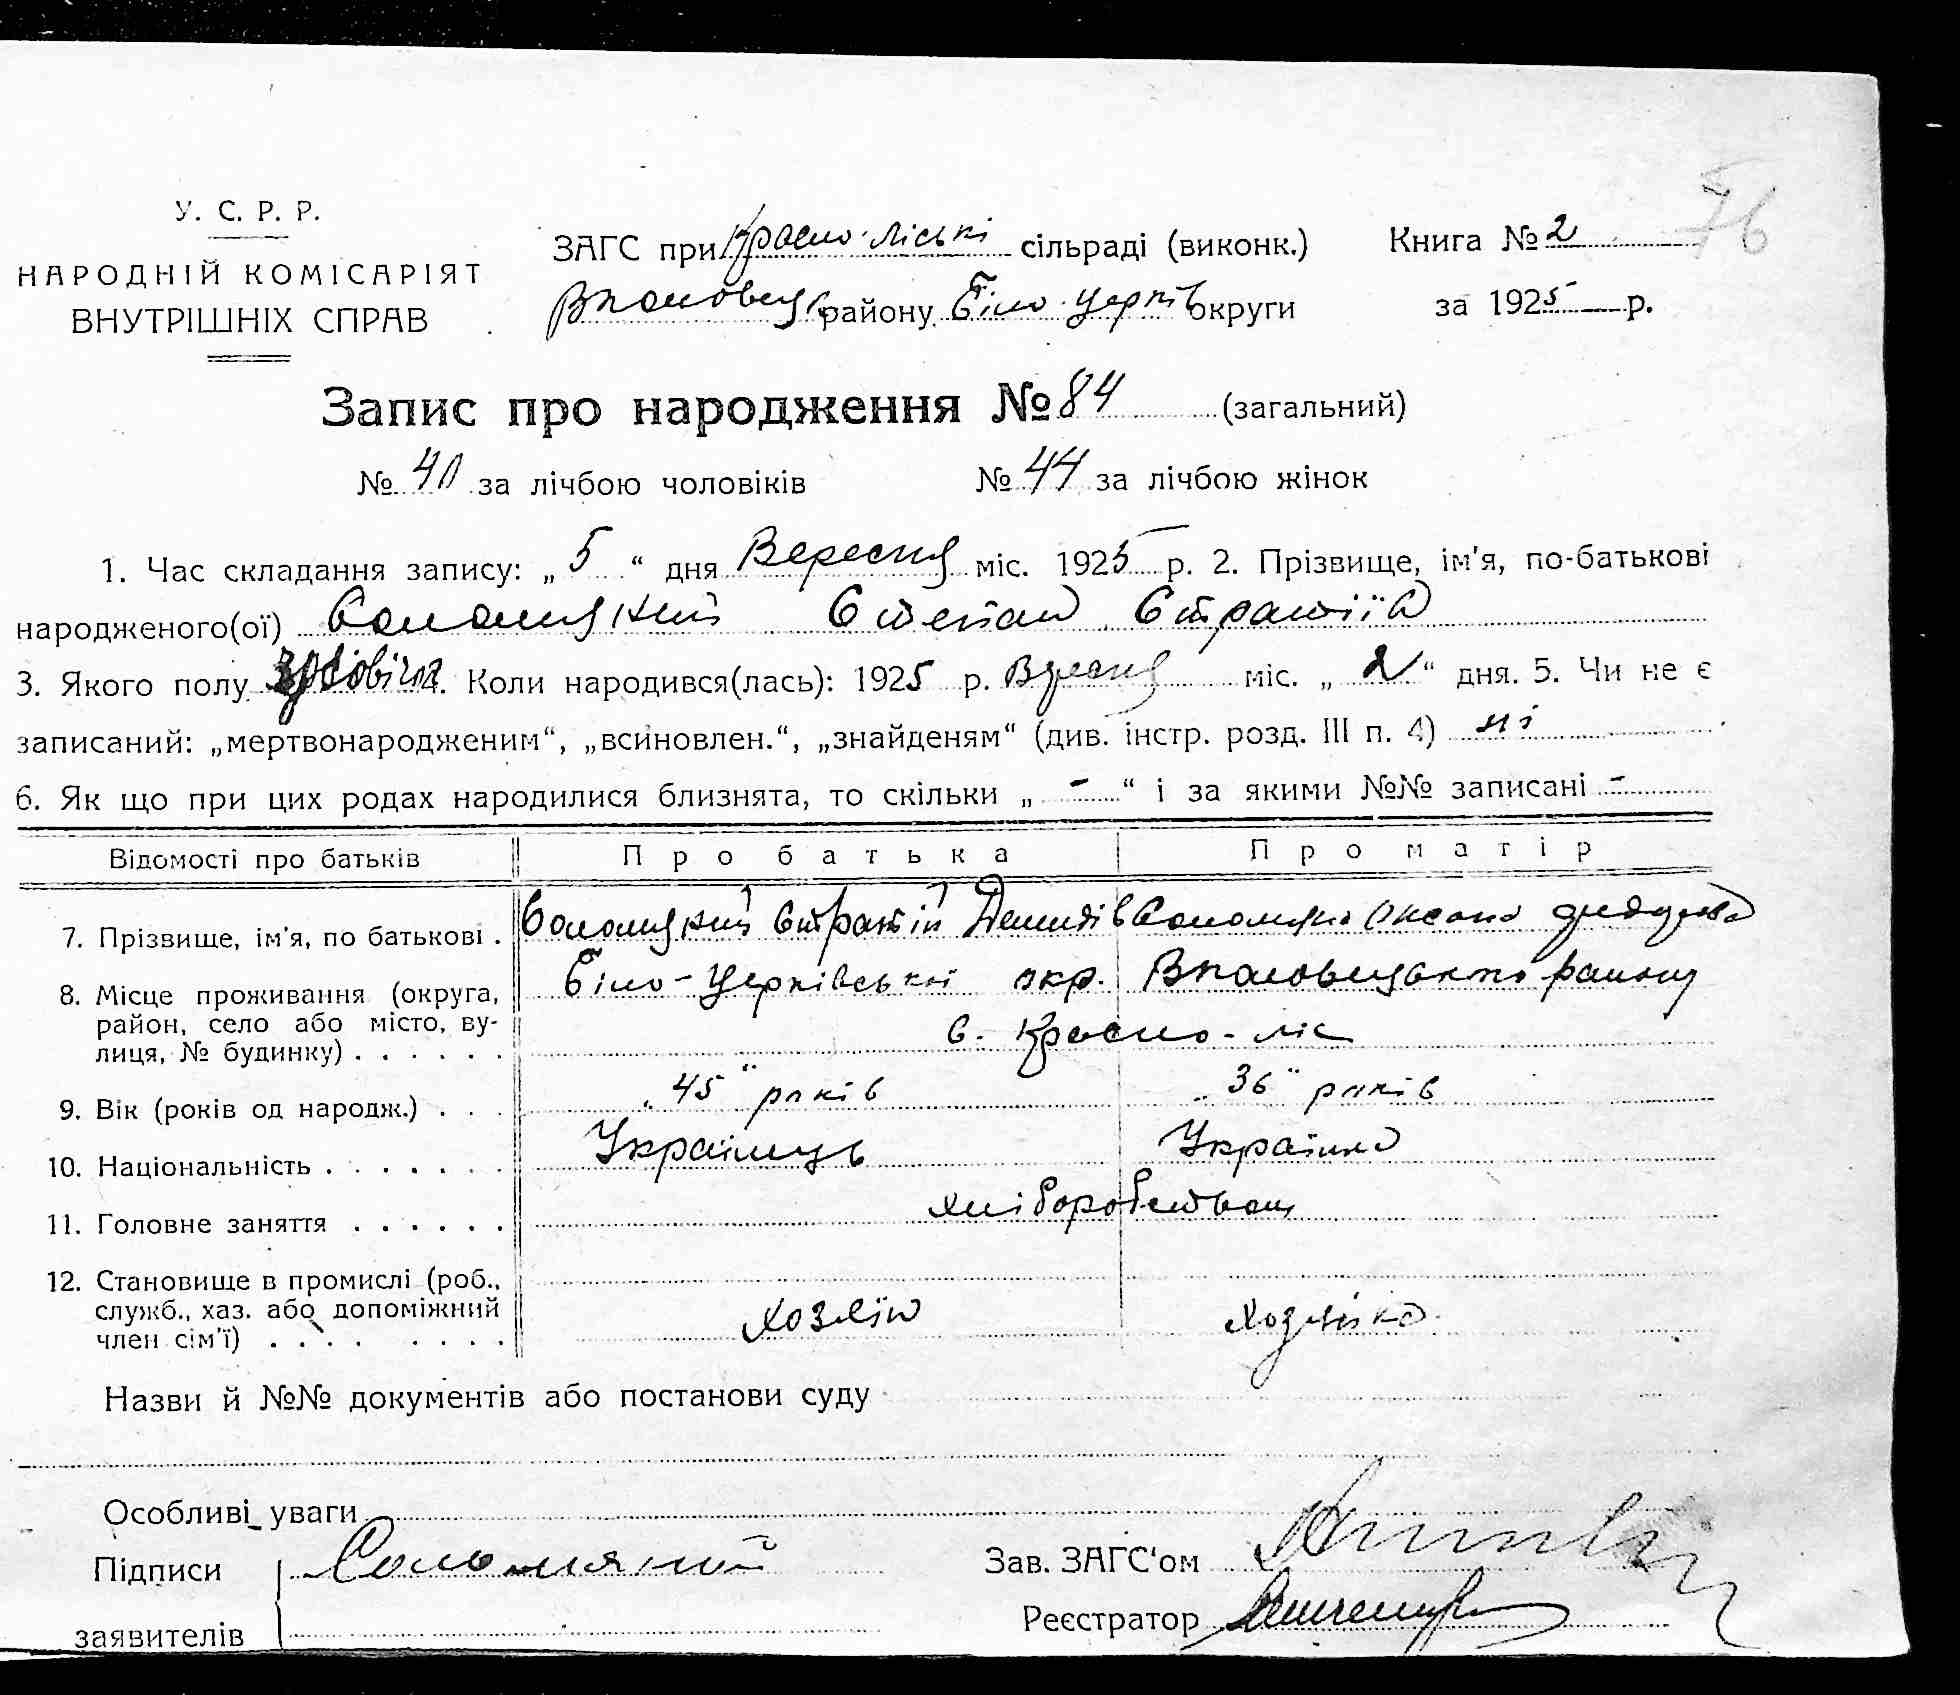 76
У. С. Р. Р.
НАРОДНІЙ КОМІСАРІЯТ
ВНУТРІШНІХ СПРАВ
ЗАГС при Красно-ліські сільраді (виконк.) Книга № 2
району Біло-Церків округи за 1925 р.
Запис про народження № 84 (загальний)
№ 40 за лічбою чоловіків № 44 за лічбою жінок
1. Час складання запису: „ 5 “ дня Вересня міс. 1925 р. 2. Прізвище, ім'я, по-батькові
народженого(ої) Соломяний Степан Єтратіїв
3. Якого полу 4. Коли народився(лась): 1925 р. Вересня міс. „ 2 “ дня. 5. Чи не є
записаний: „мертвонародженим“, „всиновлен.“, „знайденям“ (див. інстр. розд. III п. 4) ні
6. Як що при цих родах народилися близнята, то скільки „ - “ і за якими №№ записані -
Відомості про батьків Про батька Про матір
7. Прізвище, ім'я, по батькові . Соломяний Демидів Соломяна Оксана
8. Місце проживання (округа, Біло-Церківської окр. району
район, село або місто, ву- с. Красно-ліс
лиця, № будинку) . . . . . .
9. Вік (років од народж.) . . . „45“ років „36“ років
10. Національність . . . . . . . Українець Українка
11. Головне заняття . . . . . . хліборобством
12. Становище в промислі (роб.,
служб., хаз. або допоміжний хозяїн хозяйка
член сім'ї) . . . . . . . .
Назви й №№ документів або постанови суду
Особливі уваги
Підписи Соломяний Зав. ЗАГС'ом
заявителів Реєстратор